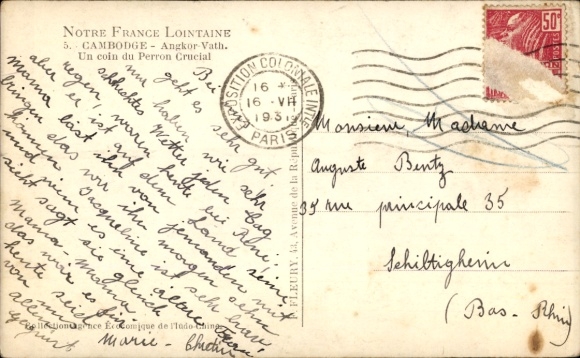 NOTRE FRANCE LOINTAINE
5. - CAMBODGE - Angkor-Vath.
Un coin du Perron Crucial
Bei
uns geht es sehr gut,
aber haben wir sehr
schlechtes Wetter jeden Tag
regen, waren heute bei René.
Mama er ist auf dem Land
bringen das wir ihr jemanden mit
können
und Jacqueline ist sehr brav
wenn es eine
sieht sagt sie gleich
Mama-Mama
das wär es für
heute seid
von
allen
gegrüsst
Marie-
Collection Agence Économique de l'Indo-Chine.
P. FLEURY, 43, Avenue de la
EXPOSITION COLONIALE INTle
PARIS
16
16 - VII
1931
50c
POSTES
Monsieur, Madame
Auguste Bentz
35 rue principale 35
Schiltigheim
(Bas-Rhin)